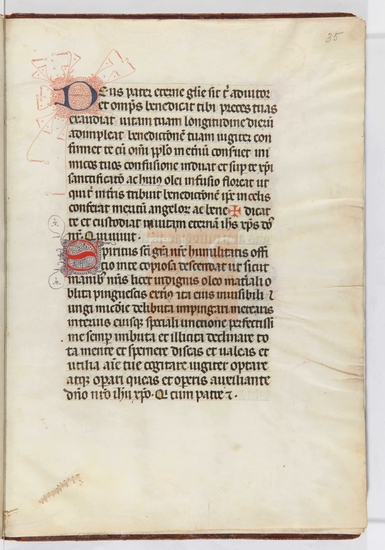 35
Deus pater eterne glie sit t̄ adiutor
et omps benedicat tibi preces tuas
exaudiat uitam tuam longitudine dierū
adimpleat benedictōnē tuam iugiter con
firmet te cū om̄i pplo in etnū confuet ini
micos tuos confusione induat et sup te xpi
sanctificatō ac huiꝰ olei infusio floreat ut
qui t̄ in tris tribuit benedictōnē ip̄e in celis
conferat meritū angeloꝝ ac bene✠dicat
te et custodiat in uitam eternā ihs xp̄s do
nr̄. Qui uiuit.
Spiritus sci grā nr̄e humilitatis offi
cio in te copiosa descendat ut sicut
manibꝰ nris licet indignis oleo mat̓iali o
blita pinguescis exteriꝰ ita eius inuisibili
ungi medie delibuta impingari merearis
interius eiusqꝫ spūali unctione perfectissi
me semp imbuta et illicita declinare to
ta mente et spernere discas et ualeas et
utilia aīe tue cogitare iugiter optare
atqꝫ opari queas et operis auxiliante
dn̄o nr̄o ihū xpō. Qui cum patre ⁊.